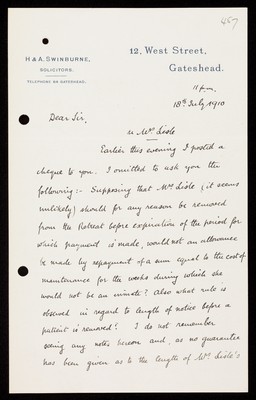 457
H & A. SWINBURNE,
SOLICITORS.
TELEPHONE 88 GATESHEAD.
12, West Street,
Gateshead.
11 p.m.
18th July 1910
Dear Sir,
Mrs Lisle
Earlier this evening I posted a
cheque to you. I omitted to ask you the
following:- Supposing that Mrs Lisle (it seems
unlikely) should for any reason be removed
from the Retreat before expiration of the period for
which payment is made, would not an allowance
be made by repayment of a sum equal to the cost of
maintenance for the weeks during which she
would not be an inmate? Also what rule is
observed in regard to length of notice before a
patient is removed? I do not remember
seeing any notes hereon and, as no guarantee
has been given as to the length of Mrs Lisle's